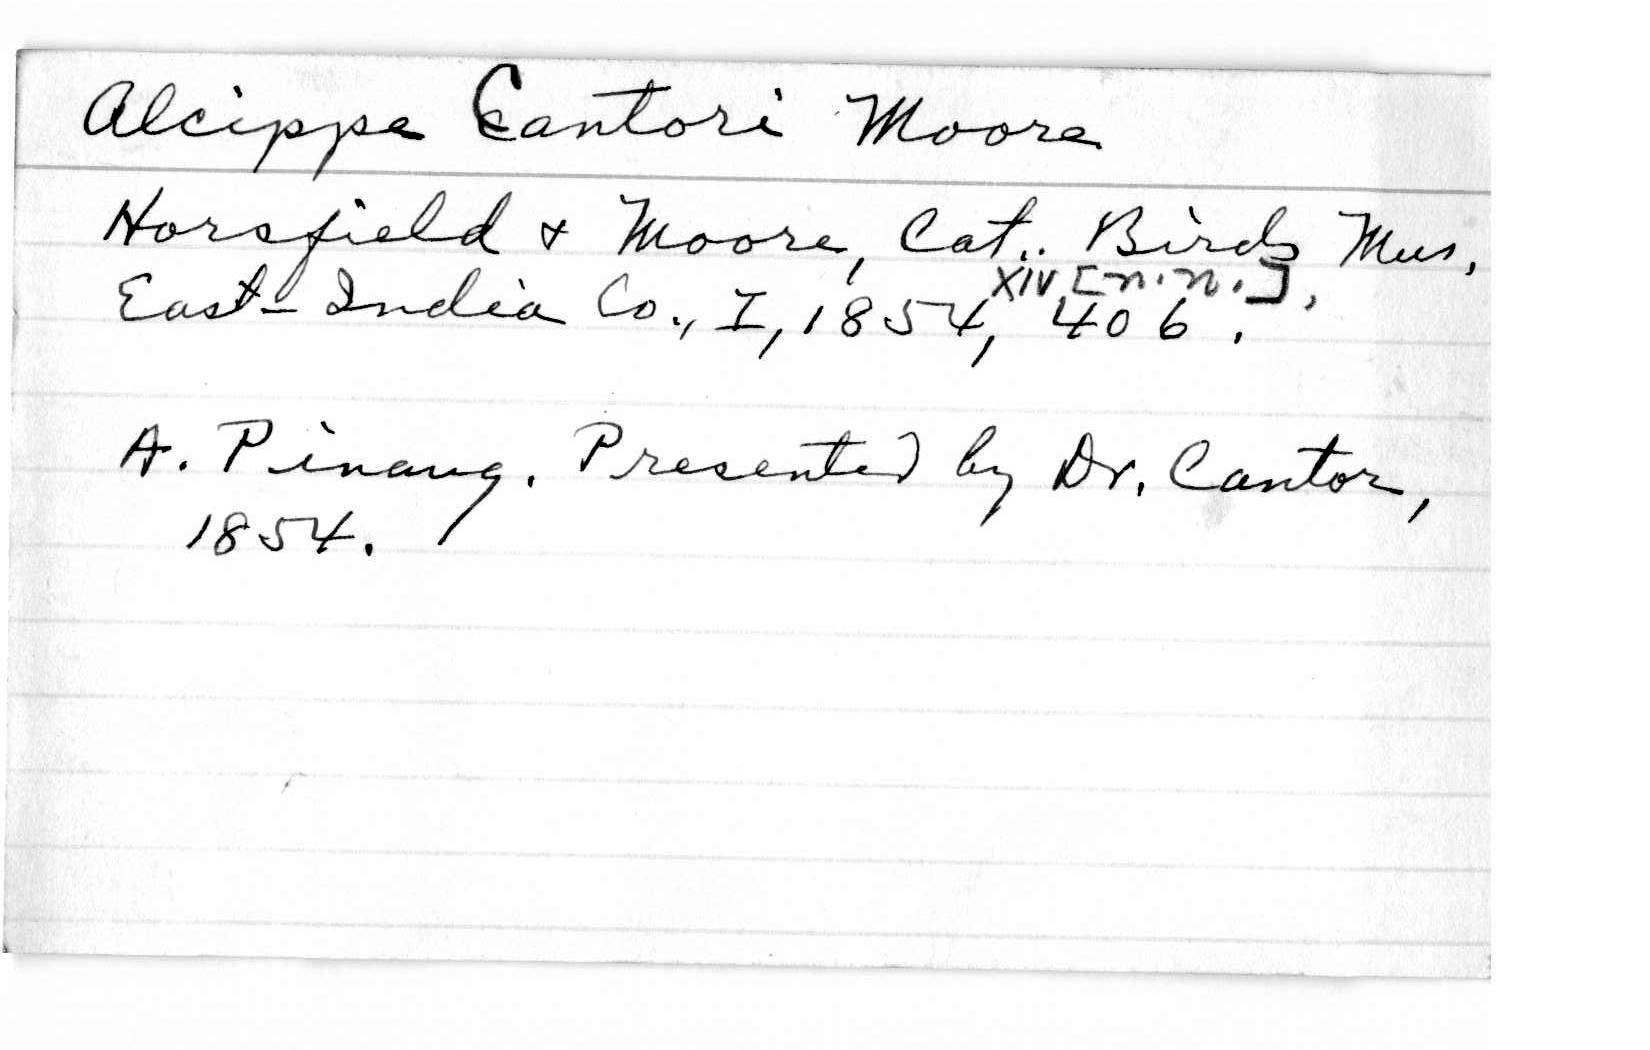 Alcippe Cantori Moore
Horsfield & Moore, Cat. Birds Mus.
East-India Co., I, 1854, XIV [n.n.], 406.
A. Pinang. Presented by Dr. Cantor,
1854.